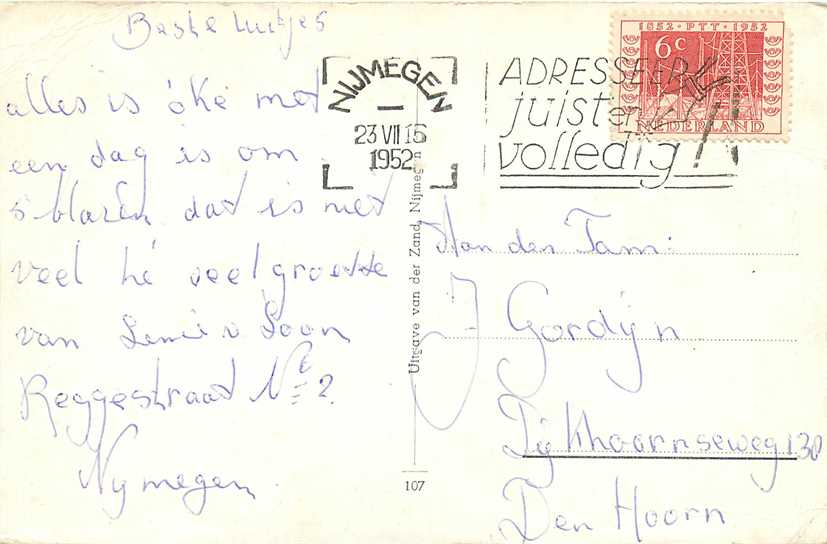 Beste luitjes
alles is óke met
een dag is om
5 blaren dat is niet
veel hé veel groette
van Lenie v Loon
Reggestraat № 2.
Nymegen
NIJMEGEN
23 VII 16
1952
ADRESSEER
juist en
volledig!
1852 · PTT · 1952
6 c
NEDERLAND
Uitgave van der Zand, Nijmegen
107
Aan den Fam:
J Gordijn
Dijkhoornseweg 130
Den Hoorn